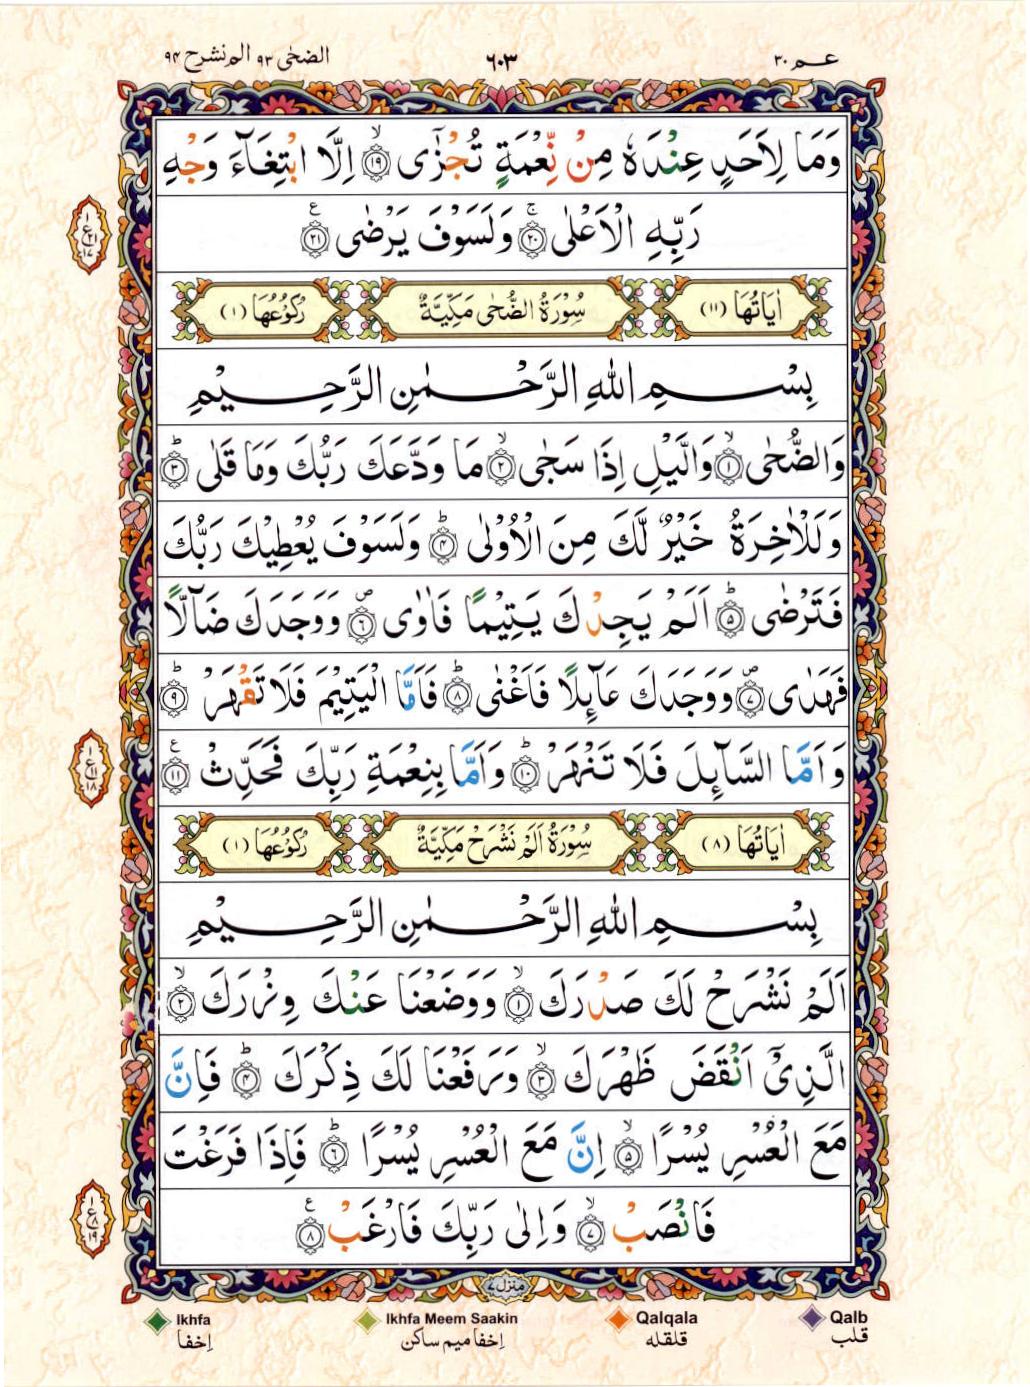 عـم ٣٠
٦٠٣
الضحٰى ٩٣ الم نشرح ٩٤
وَمَا لِاَحَدٍ عِنْدَهٗ مِنْ نِّعْمَةٍ تُجْزٰٓى ۙ ﴿١٩﴾ اِلَّا ابْتِغَآءَ وَجْهِ
رَبِّهِ الْاَعْلٰى ۚ ﴿٢٠﴾ وَلَسَوْفَ يَرْضٰى ﴿٢١﴾ ع
ع ١ ٢١ ١٧
اٰيَاتُهَا (١١) سُوْرَةُ الضُّحٰى مَكِّيَّةٌ رُكُوْعُهَا (١)
بِسْمِ اللّٰهِ الرَّحْمٰنِ الرَّحِيْمِ
وَالضُّحٰى ۙ ﴿١﴾ وَالَّيْلِ اِذَا سَجٰى ۙ ﴿٢﴾ مَا وَدَّعَكَ رَبُّكَ وَمَا قَلٰى ؕ ﴿٣﴾
وَلَلْاٰخِرَةُ خَيْرٌ لَّكَ مِنَ الْاُوْلٰى ؕ ﴿٤﴾ وَلَسَوْفَ يُعْطِيْكَ رَبُّكَ
فَتَرْضٰى ؕ ﴿٥﴾ اَلَمْ يَجِدْكَ يَتِيْمًا فَاٰوٰى ۪ ﴿٦﴾ وَوَجَدَكَ ضَآلًّا
فَهَدٰى ۪ ﴿٧﴾ وَوَجَدَكَ عَآئِلًا فَاَغْنٰى ؕ ﴿٨﴾ فَاَمَّا الْيَتِيْمَ فَلَا تَقْهَرْ ؕ ﴿٩﴾
وَاَمَّا السَّآئِلَ فَلَا تَنْهَرْ ؕ ﴿١٠﴾ وَاَمَّا بِنِعْمَةِ رَبِّكَ فَحَدِّثْ ﴿١١﴾ ع
ع ١ ١١ ١٨
اٰيَاتُهَا (٨) سُوْرَةُ اَلَمْ نَشْرَحْ مَكِّيَّةٌ رُكُوْعُهَا (١)
بِسْمِ اللّٰهِ الرَّحْمٰنِ الرَّحِيْمِ
اَلَمْ نَشْرَحْ لَكَ صَدْرَكَ ۙ ﴿١﴾ وَوَضَعْنَا عَنْكَ وِزْرَكَ ۙ ﴿٢﴾
الَّذِيْٓ اَنْقَضَ ظَهْرَكَ ۙ ﴿٣﴾ وَرَفَعْنَا لَكَ ذِكْرَكَ ؕ ﴿٤﴾ فَاِنَّ
مَعَ الْعُسْرِ يُسْرًا ۙ ﴿٥﴾ اِنَّ مَعَ الْعُسْرِ يُسْرًا ؕ ﴿٦﴾ فَاِذَا فَرَغْتَ
فَانْصَبْ ۙ ﴿٧﴾ وَاِلٰى رَبِّكَ فَارْغَبْ ﴿٨﴾ ع
ع ١ ٨ ١٩
منزل ٧
Ikhfa Ikhfa Meem Saakin Qalqala Qalb
إخفا إخفا ميم ساكن قلقله قلب